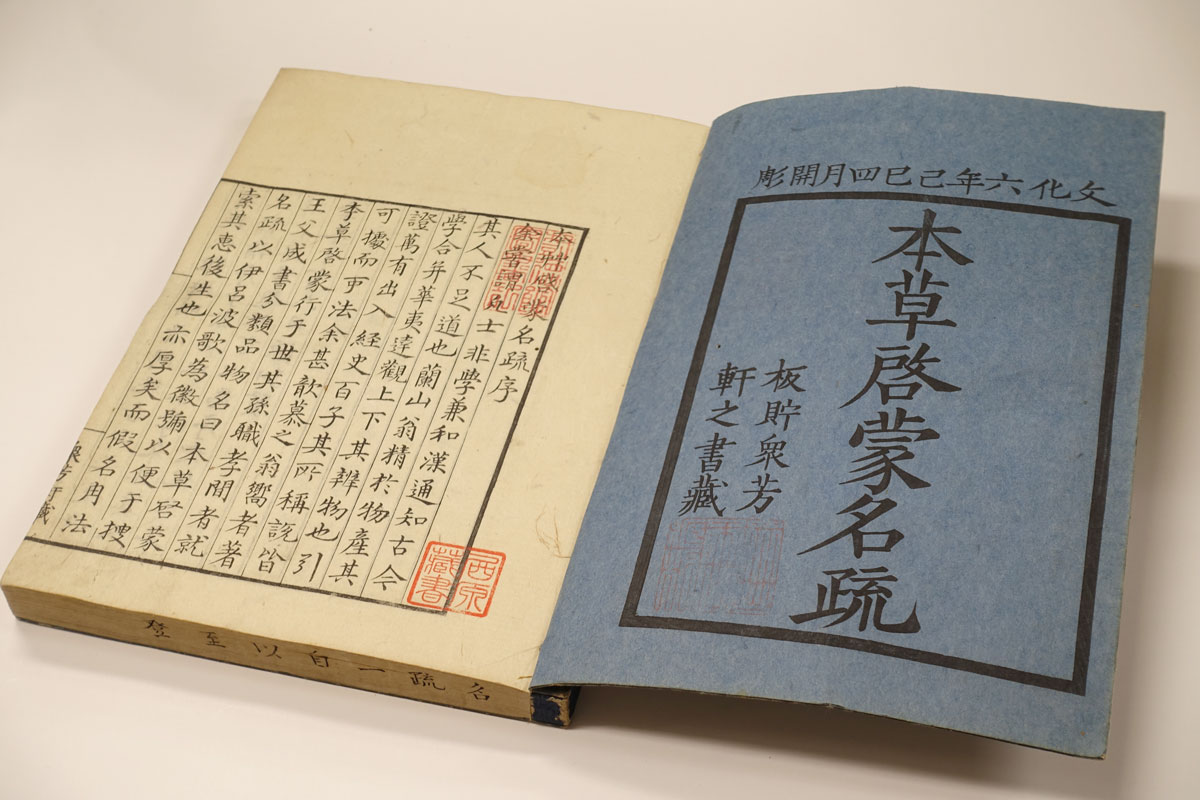 文化六年己巳四月開彫
本草啓蒙名疏
板貯衆芳
軒之書藏
本草啓蒙名疏序
余嘗謂凡士非學兼和漢通知古今
其人不足道也蘭山翁精於物產其
學合并華夷達觀上下其辨物也引
證萬有出入經史百子其所稱說皆
可據而可法余甚歆慕之翁嚮者著
本草啓蒙行于世其孫職孝間者就
王父成書分類品物名曰本草啓蒙
名疏以伊呂波歌為徽號以便于搜
索其惠後生也亦厚矣而假名用法
衆芳軒藏
藏書
名疏一自以至登